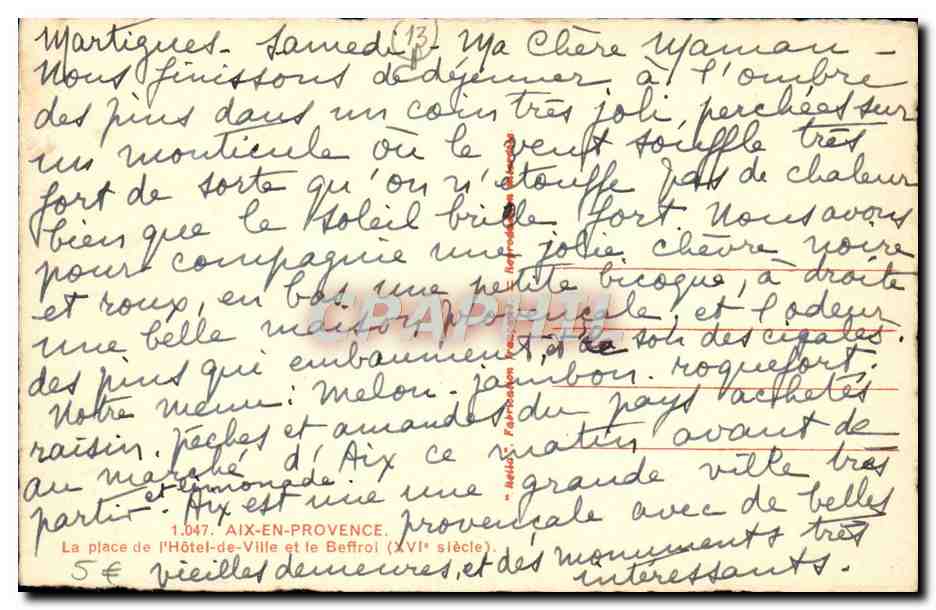 Martigues - Samedi (13) - Ma Chère Maman -
Nous finissons de déjeuner à l'ombre
des pins dans un coin très joli, perchées sur
un monticule où le vent souffle très
fort de sorte qu'on n'étouffe pas de chaleur
bien que le soleil brille fort. Nous avons
pour compagnie une jolie chèvre noire
et roux, en bas une petite bicoque, à droite
une belle maison provençale, et l'odeur
des pins qui embaument, et le son des cigales.
Notre menu : Melon - jambon - roquefort.
raisin. pêches et amandes du pays achetés
au marché d'Aix ce matin avant de
et limonade.
partir - Aix est une une grande ville très
provençale avec de belles
vieilles demeures, et des monuments très
intéressants.
1.047. AIX-EN-PROVENCE.
La place de l'Hôtel-de-Ville et le Beffroi (XVIe siècle).
5 €
CPAPHIL